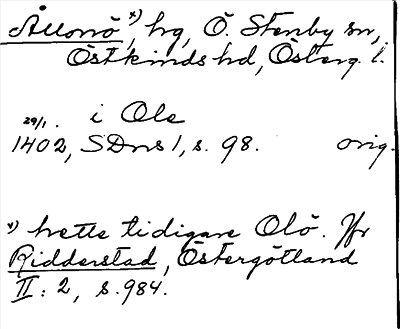 Ållonö x), hg, Ö. Stenby sn,
Östkinds hd, Österg. l.
29/1. i Ole
1402, SDns 1, s. 98. orig.
x) hette tidigare Olö. Jfr
Ridderstad, Östergötland
II: 2, s. 984.